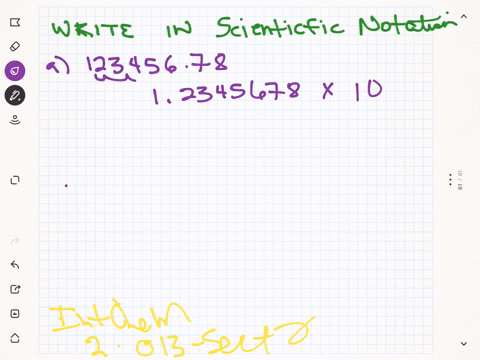 WRITE IN Scienticfic Notation
a) 123,456.78
1.2345678 x 10
Int Chem
2.013-Sect 2